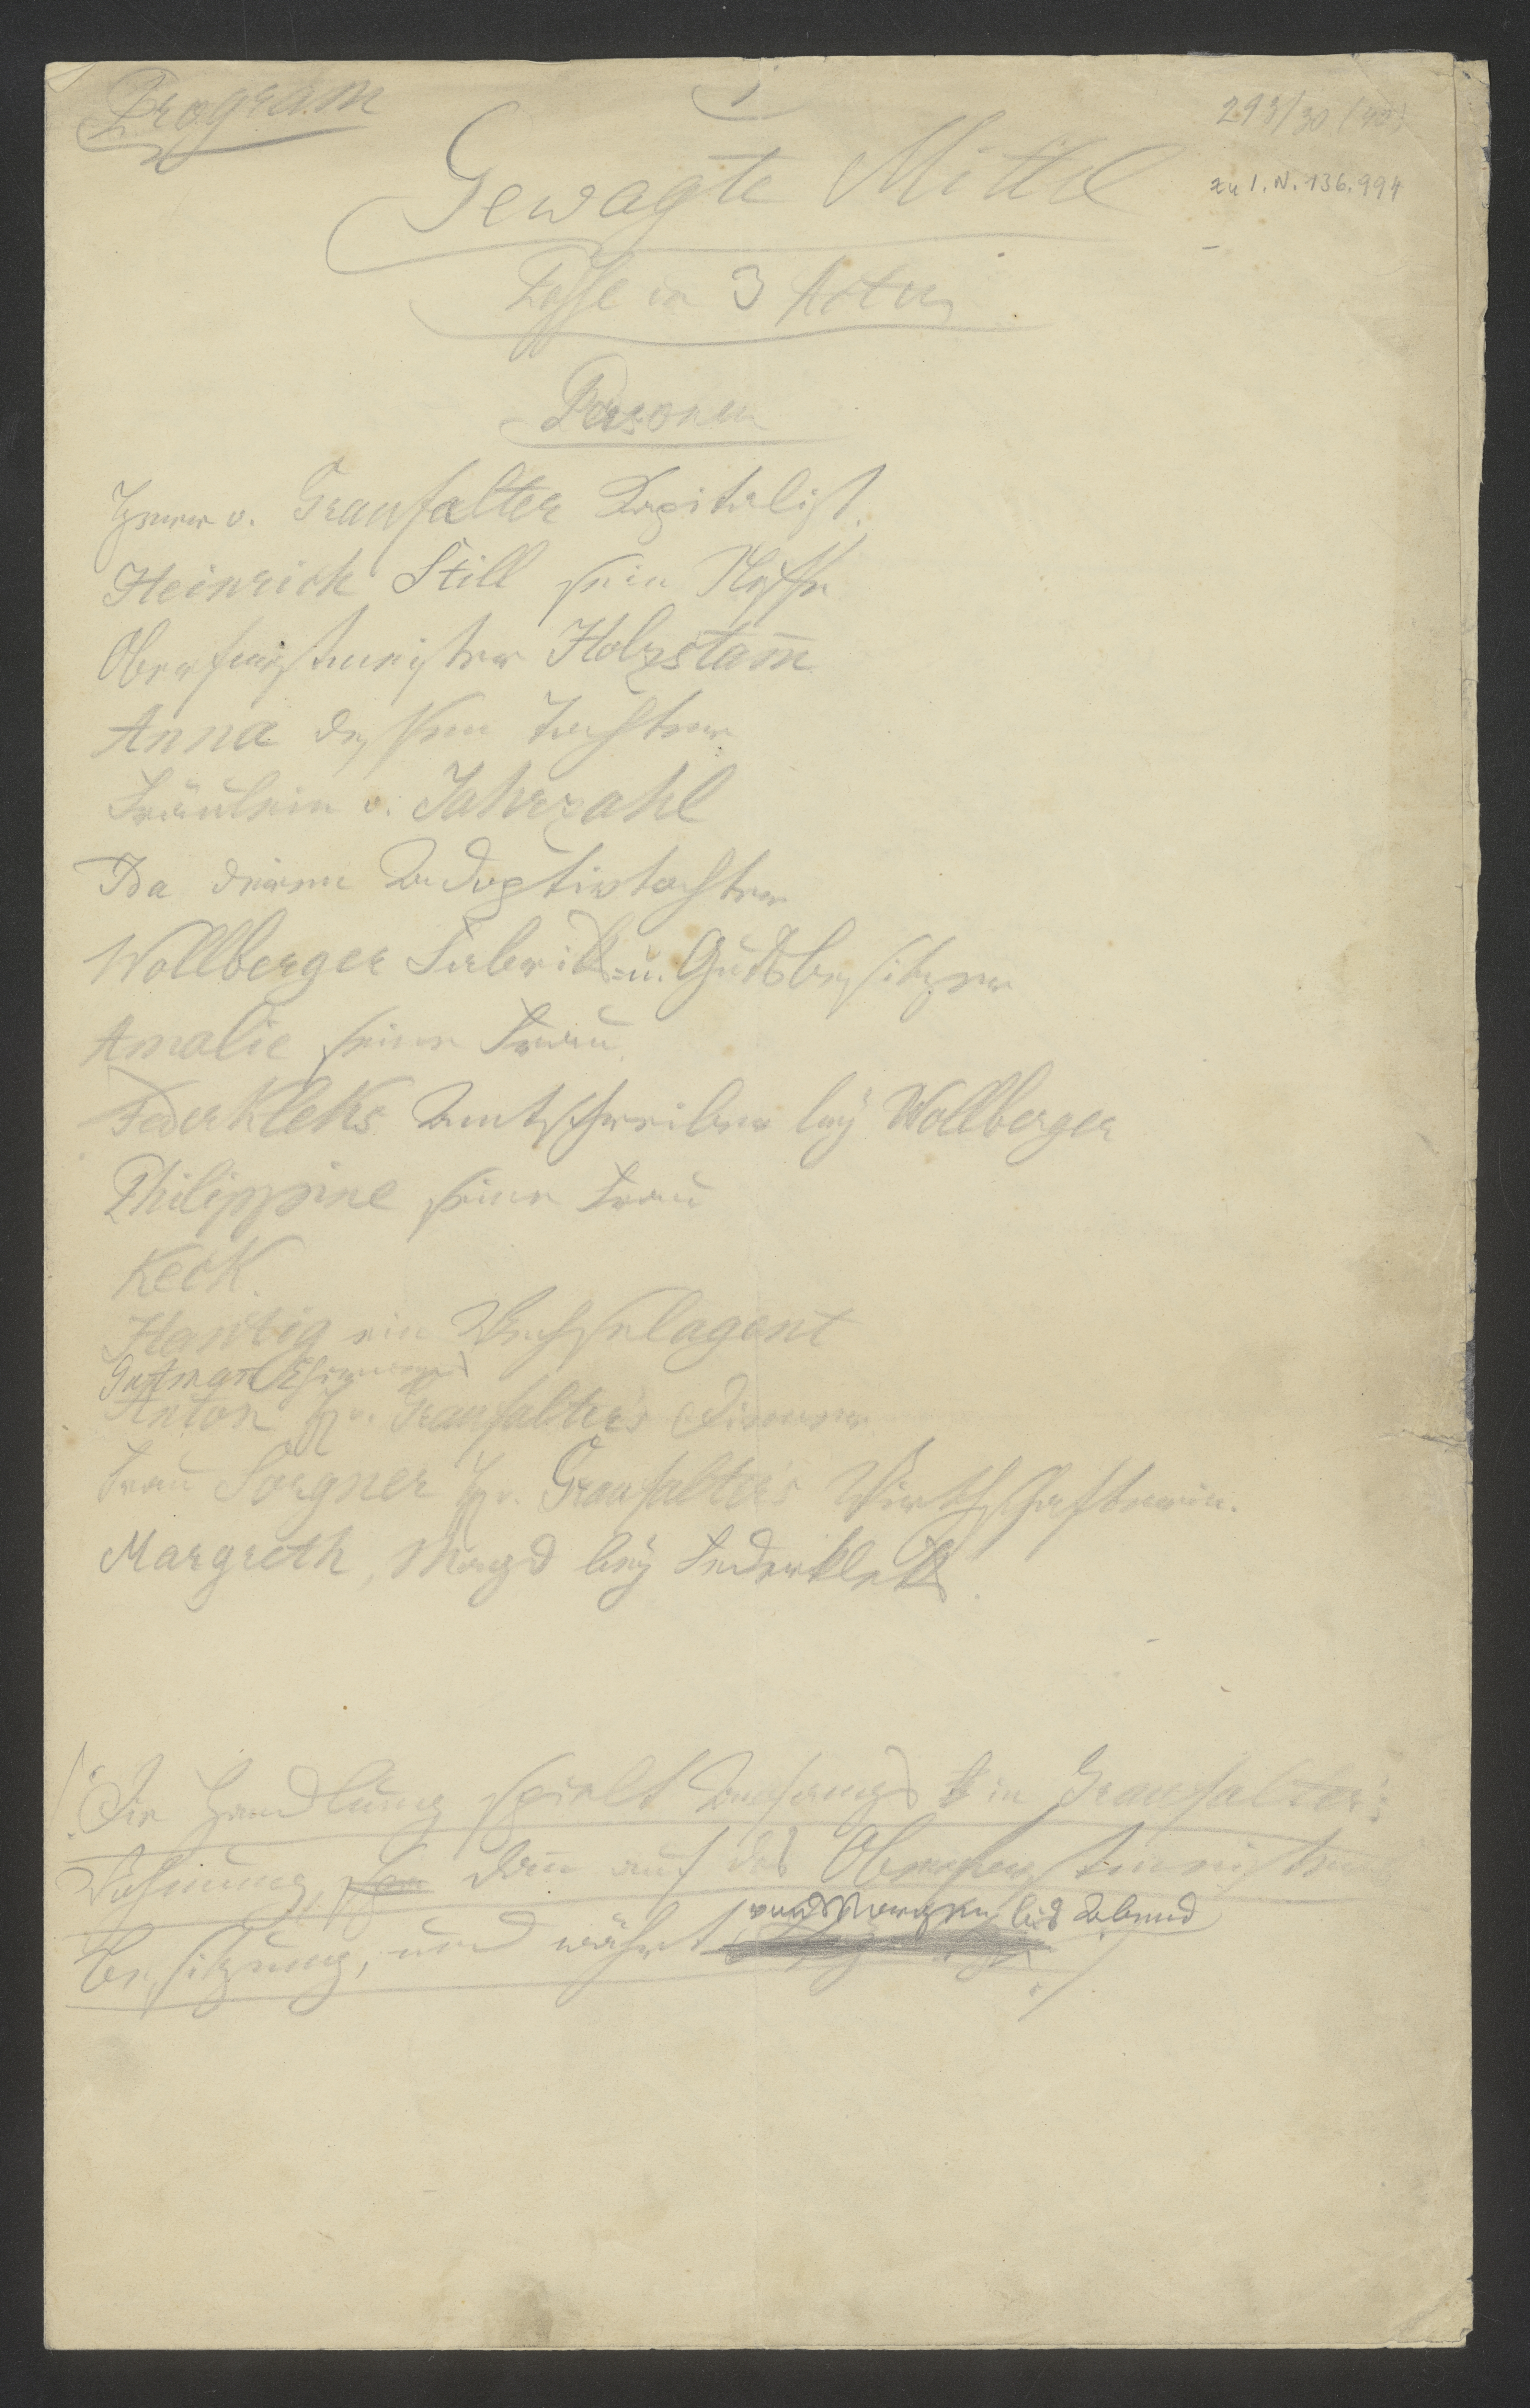 Program
1
293/30 (40)
zu I.N. 136.994
Gewagte Mittel
Posse in 3 Acten
Personen
Herr v. Graufalter Kapitalist.
Heinrich Still sein Neffe
Oberforstmeister Holzstam̅
Anna dessen Tochter
Fräulein v. Jahrzahl
Ida deren Adoptivtochter
Wollberger Fabriks- u. Gutsbesitzer
Amalie seine Frau
Federkleks Amtschreiber bey Wollberger
Philippine seine Frau
Keck.
ein Wechselagent
Gutman
Anton H. v. Graufalter's Diener
Frau Sorgner H. v. Graufalter's Wirthschafterin.
Margreth, Magd bey Federkleks.
/: Die Handlung spielt Anfangs in Graufalter's
Wohnung, dan̅ auf des Oberforstmeisters
von Morgen bis Abend
Besitzung, und währt :/